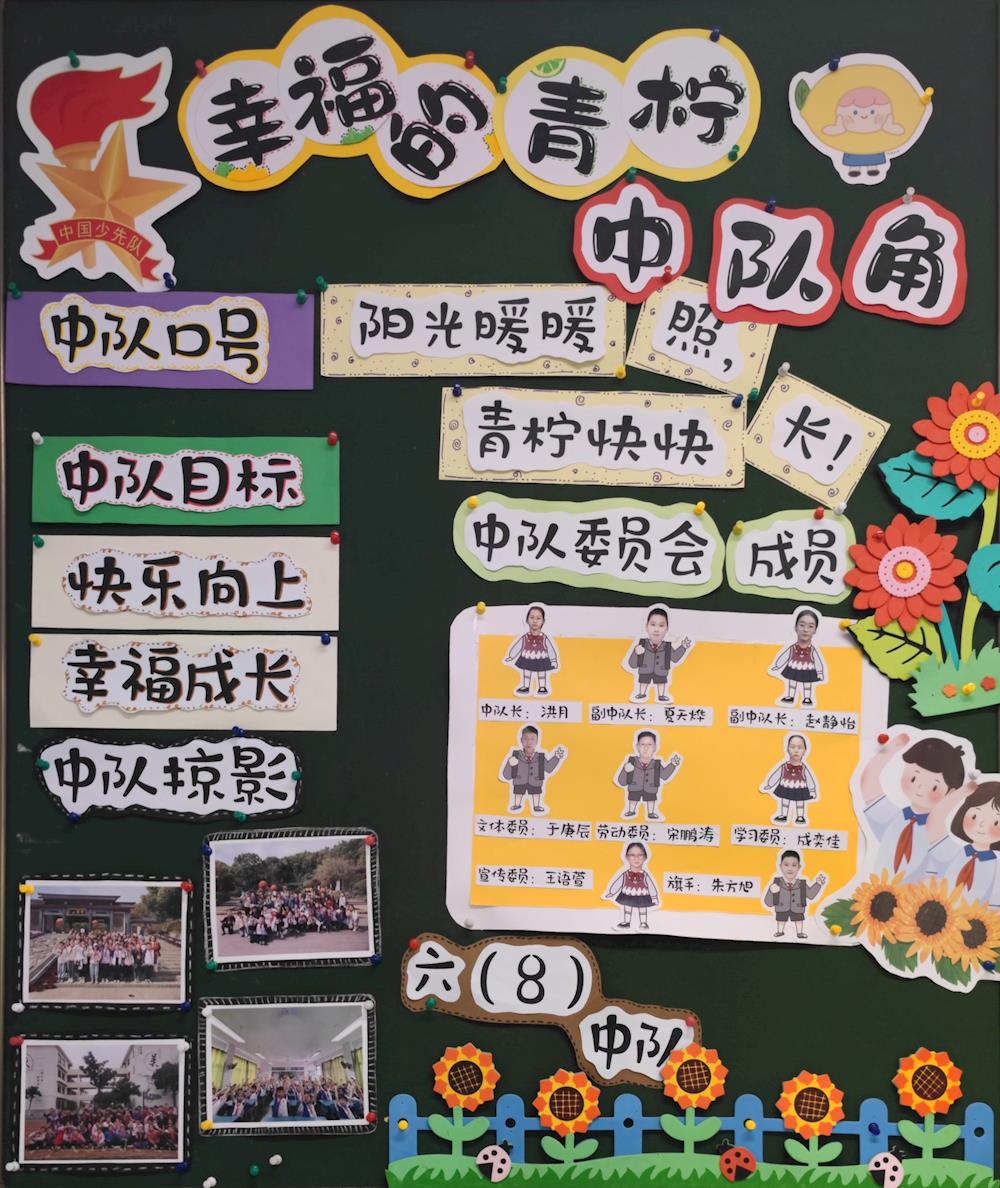 幸福的青柠
中国少先队
中队角
中队口号
阳光暖暖照，
青柠快快长！
中队目标
快乐向上
幸福成长
中队委员会成员
中队长：洪月
副中队长：夏天烨
副中队长：赵静怡
文体委员：于庚辰
劳动委员：宋鹏涛
学习委员：成奕佳
宣传委员：王语萱
旗手：朱方旭
中队掠影
六(8)
中队